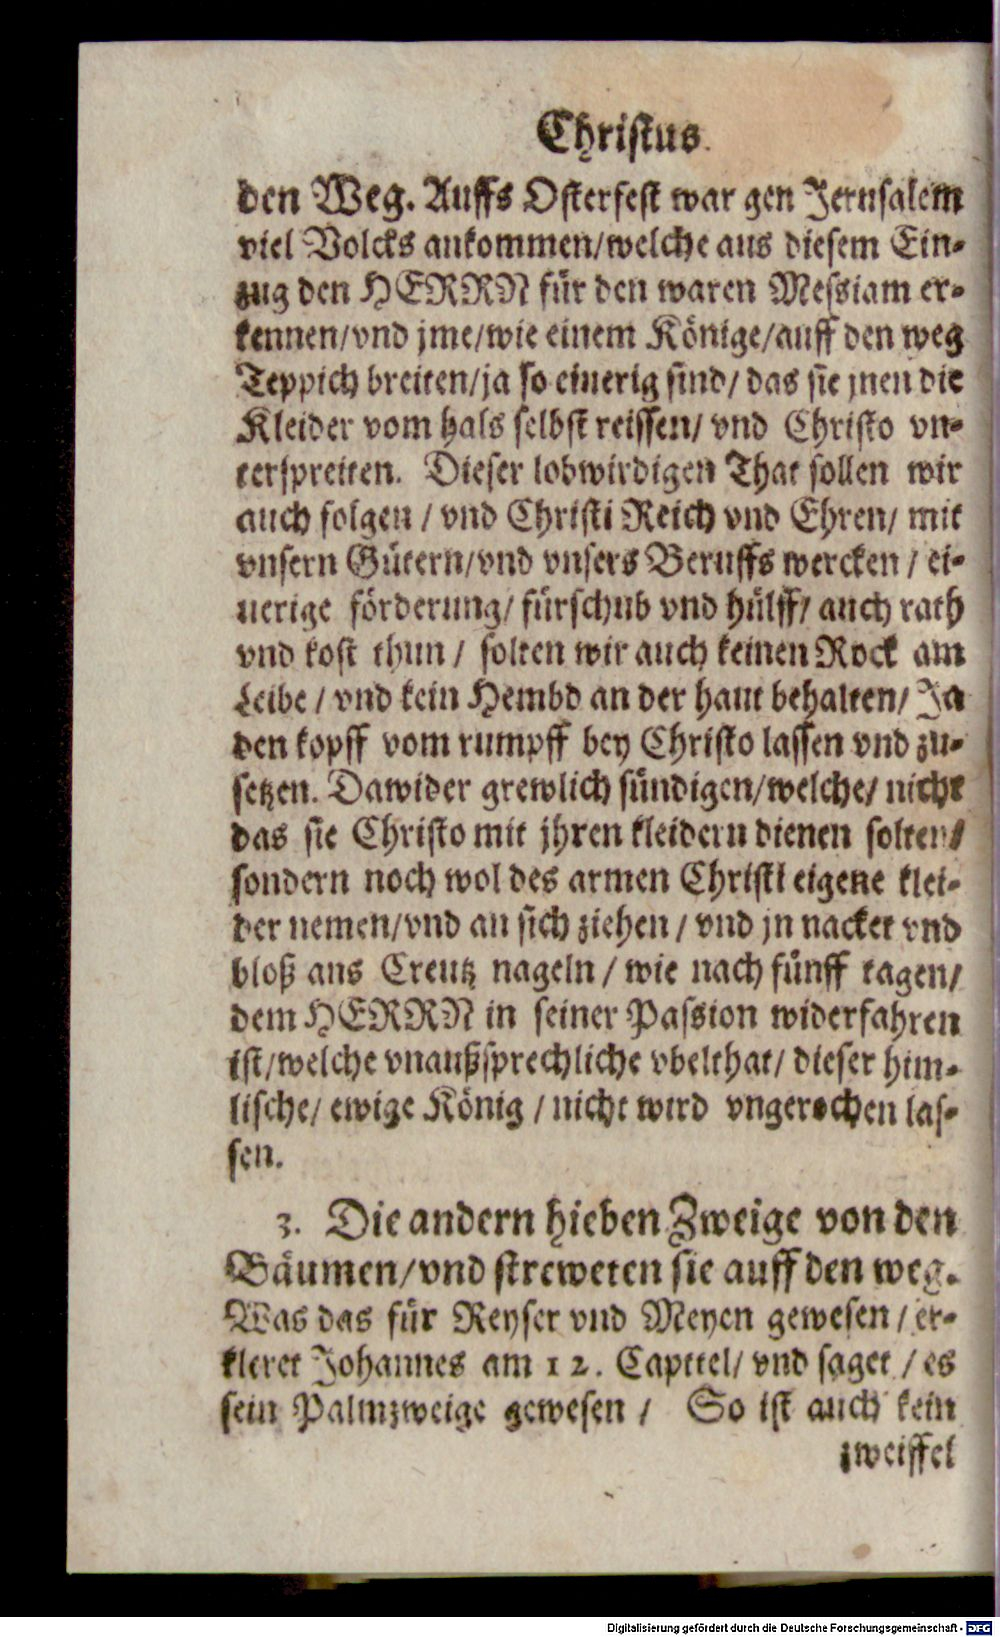 Christus.
den Weg. Auffs Osterfest war gen Jerusalem
viel Volcks ankommen/welche aus diesem Ein-
zug den HERRN für den waren Messiam er-
kennen/vnd jme/wie einem Könige/auff den weg
Teppich breiten/ja so eiuerig sind/ das sie jnen die
Kleider vom hals selbst reissen/ vnd Christo vn-
terspreiten. Dieser lobwirdigen That sollen wir
auch folgen / vnd Christi Reich vnd Ehren/ mit
vnsern Gütern/vnd vnsers Beruffs wercken / ei-
uerige förderung/ fürschub vnd hülff/ auch rath
vnd kost thun / solten wir auch keinen Rock am
Leibe / vnd kein Hembd an der haut behalten/ Ja
den kopff vom rumpff bey Christo lassen vnd zu-
setzen. Dawider grewlich sündigen/welche/ nicht
das sie Christo mit jhren kleidern dienen solten/
sondern noch wol des armen Christi eigene klei-
der nemen/vnd an sich ziehen / vnd jn nacket vnd
bloß ans Creutz nageln / wie nach fünff tagen/
dem HERRN in seiner Passion widerfahren
ist/welche vnaußsprechliche vbelthat/ dieser him-
lische/ ewige König / nicht wird vngerochen las-
sen.
3. Die andern hieben Zweige von den
Bäumen/vnd streweten sie auff den weg.
Was das für Reyser vnd Meyen gewesen / er-
kleret Johannes am 12. Capittel/ vnd saget / es
sein Palmzweige gewesen / So ist auch kein
zweiffel
Digitalisierung gefördert durch die Deutsche Forschungsgemeinschaft - DFG